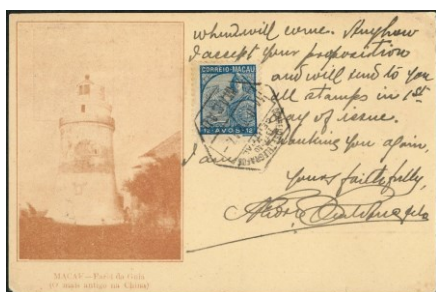 when will come. Anyhow
I accept your proposition
and will send to you
all stamps in 1st
day of issue.
Thanking you again,
I am
Yours faithfully,
CORREIO·MACAU
12 AVOS 12
MACAU — Farol da Guia
(O mais antigo na China)